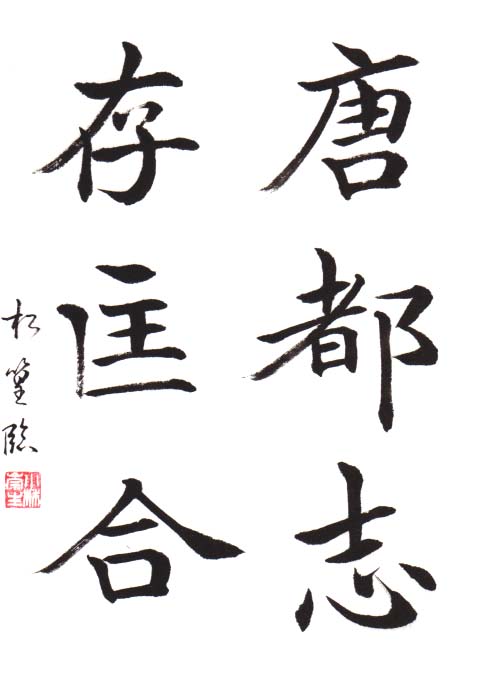 唐都志
存匡合
松篁臨